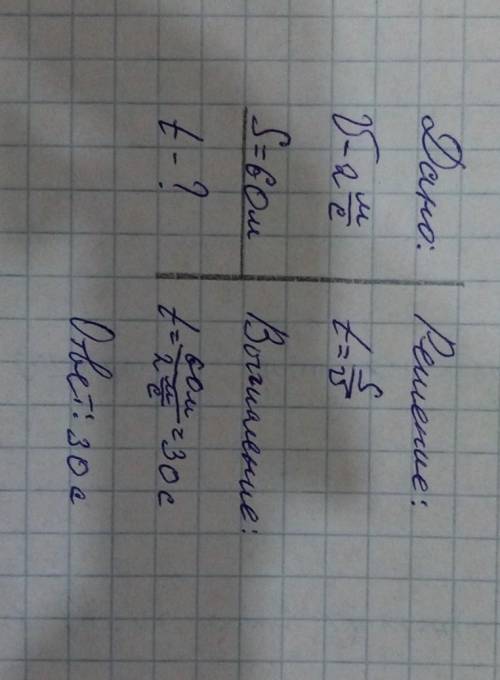 Дано:
V - 2 м/с
S = 60м
t - ?
Решение:
t = S/V
Вычисление:
t = 60м / 2 м/с = 30 с
Ответ: 30 с